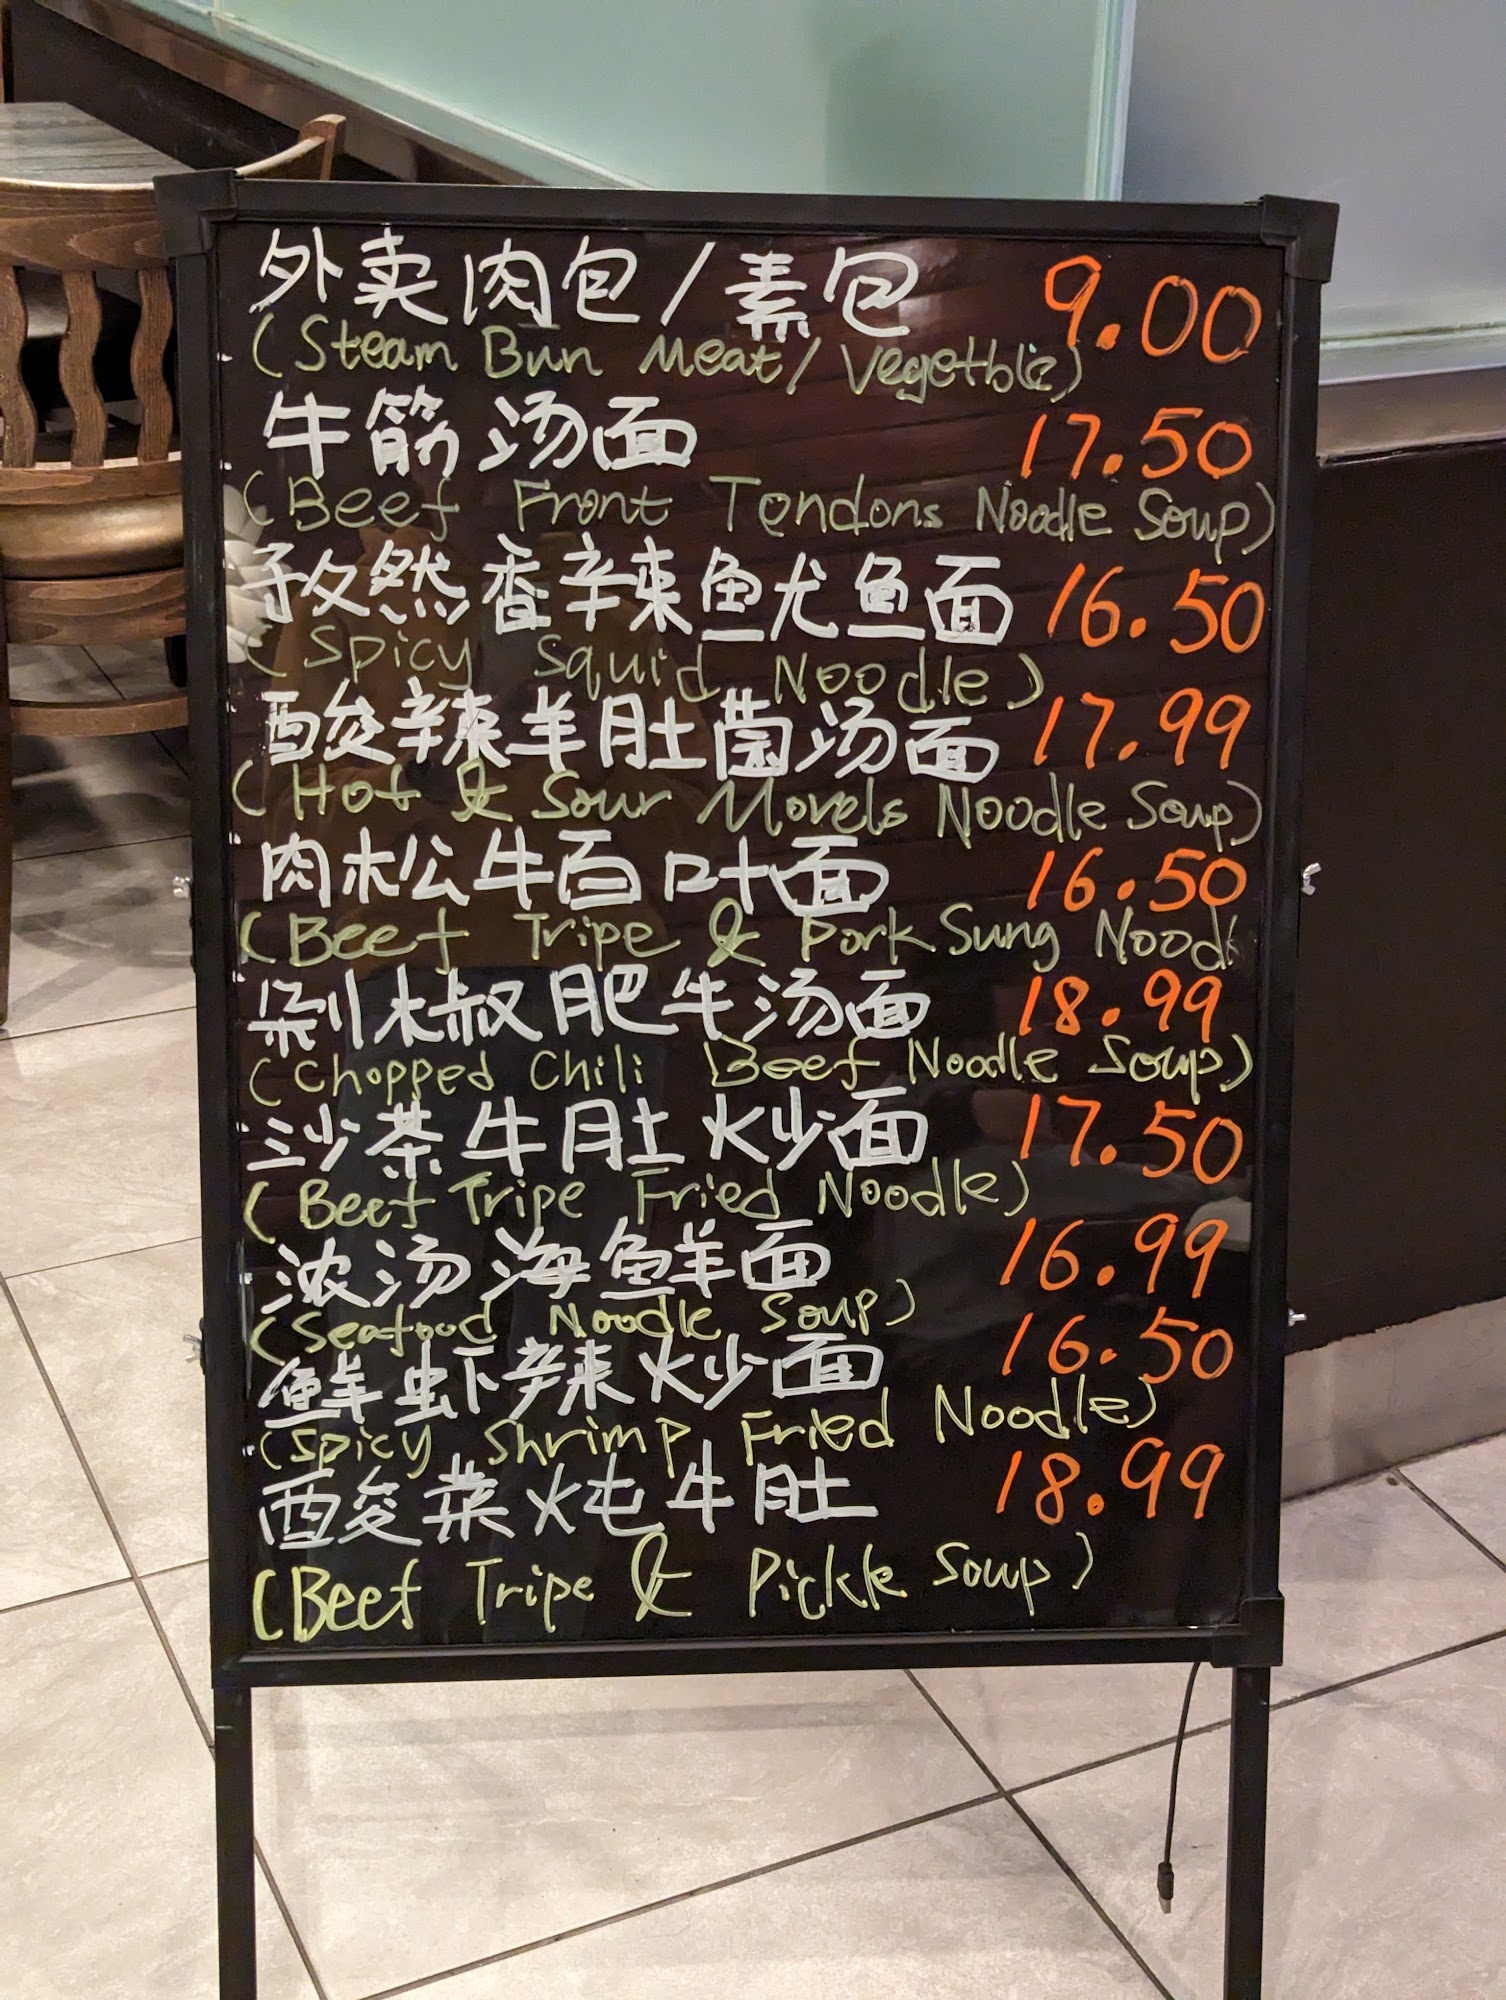 外卖肉包/素包 9.00
(Steam Bun Meat/Vegetble)
牛筋汤面 17.50
(Beef Front Tendons Noodle Soup)
孜然香辣鱼尤鱼面 16.50
(Spicy Squid Noodle)
酸辣羊肚菌汤面 17.99
(Hot & Sour Morels Noodle Soup)
肉松牛百叶面 16.50
(Beef Tripe & Pork Sung Noodl
剁椒肥牛汤面 18.99
(Chopped Chili Beef Noodle Soup)
沙茶牛肚炒面 17.50
(Beef Tripe Fried Noodle)
浓汤海鲜面 16.99
(Seafood Noodle Soup)
鲜虾辣炒面 16.50
(Spicy Shrimp Fried Noodle)
酸菜炖牛肚 18.99
(Beef Tripe & Pickle Soup)